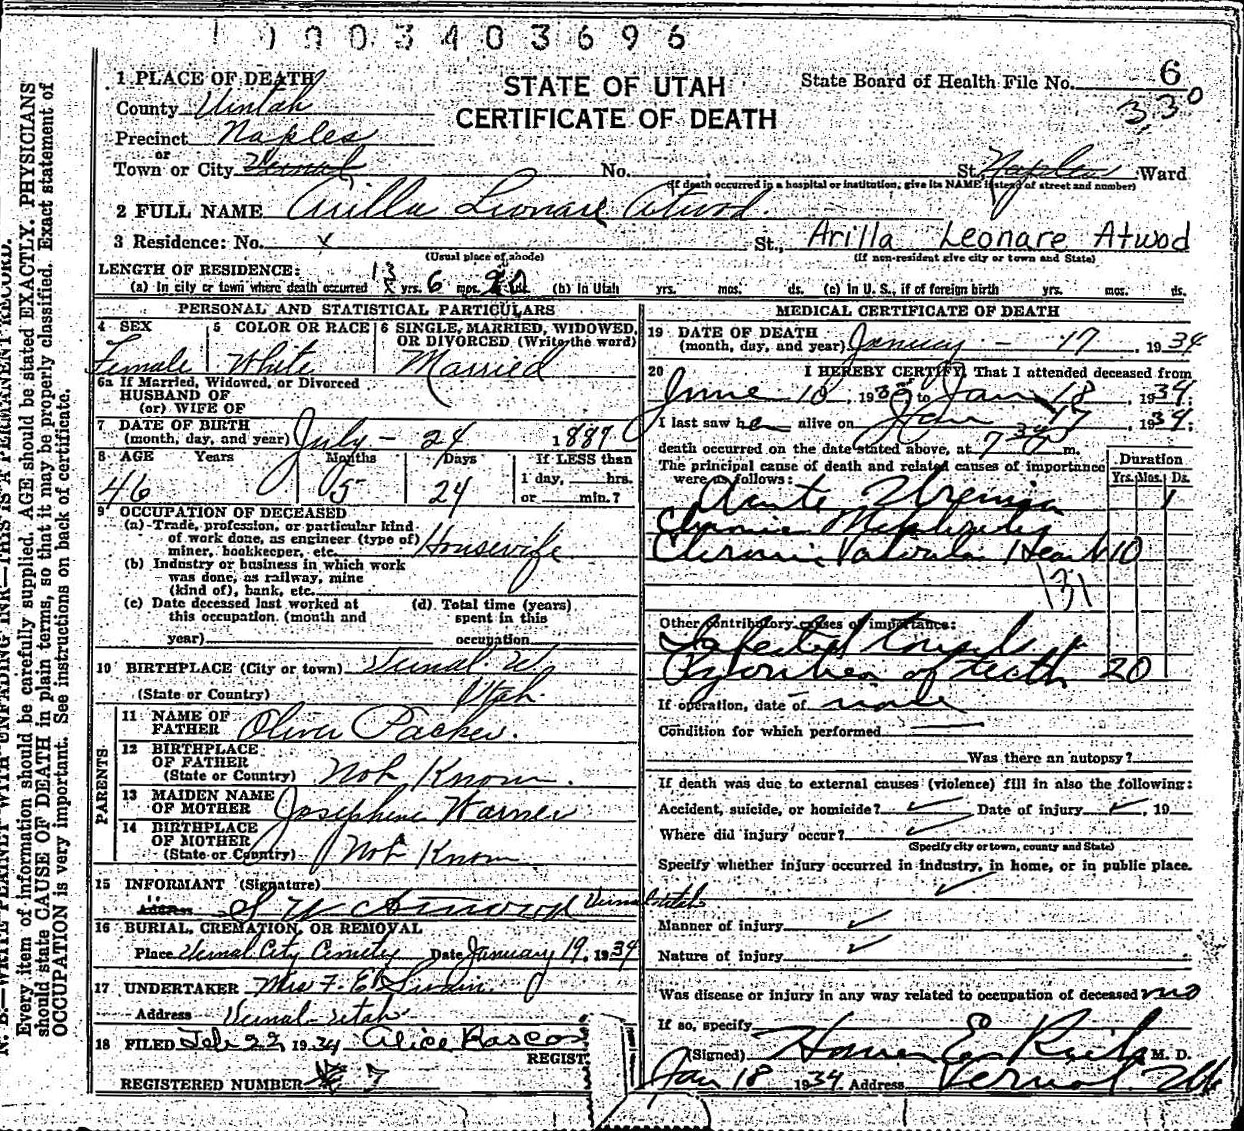 1 0 0 0 3 4 0 3 6 9 6
1 PLACE OF DEATH
County Uintah
Precinct Naples
or
Town or City Vernal No. St. Naples Ward
(If death occurred in a hospital or institution, give its NAME instead of street and number)
STATE OF UTAH
CERTIFICATE OF DEATH
State Board of Health File No. 6
330
2 FULL NAME Arilla Leonare Atwod
3 Residence: No. x St., Arilla Leonare Atwod
(Usual place of abode) (If non-resident give city or town and State)
LENGTH OF RESIDENCE:
(a) In city or town where death occurred 13 yrs. 6 mos. ds. (b) In Utah yrs. mos. ds. (c) In U. S., if of foreign birth yrs. mos. ds.
PERSONAL AND STATISTICAL PARTICULARS
4 SEX
Female
5 COLOR OR RACE
White
6 SINGLE, MARRIED, WIDOWED,
OR DIVORCED (Write the word)
Married
6a If Married, Widowed, or Divorced
HUSBAND OF
(or) WIFE OF
7 DATE OF BIRTH
(month, day, and year) July - 24 1887
8 AGE Years Months Days If LESS than
1 day, hrs.
46 5 24 or min.?
9 OCCUPATION OF DECEASED
(a) Trade, profession, or particular kind
of work done, as engineer (type of)
miner, bookkeeper, etc. Housewife
(b) Industry or business in which work
was done, as railway, mine
(kind of), bank, etc.
(c) Date deceased last worked at
this occupation. (month and
year)
(d) Total time (years)
spent in this
occupation
10 BIRTHPLACE (City or town) Vernal
(State or Country) Utah
PARENTS
11 NAME OF
FATHER Oliver Packer.
12 BIRTHPLACE
OF FATHER
(State or Country) Not Known.
13 MAIDEN NAME
OF MOTHER Josephine Warner
14 BIRTHPLACE
OF MOTHER
(State or Country) Not Known
15 INFORMANT (Signature)
Address S W Atwood Vernal Utah
16 BURIAL, CREMATION, OR REMOVAL
Place Vernal City Cemetry Date January 19, 1934
17 UNDERTAKER Mrs F. E. Swain.
Address Vernal-Utah
18 FILED Feb 22, 1934 Alice
REGIST
REGISTERED NUMBER 7
MEDICAL CERTIFICATE OF DEATH
19 DATE OF DEATH
(month, day, and year) January - 17, 1934
20 I HEREBY CERTIFY, That I attended deceased from
June 10, 193 to Jan 18, 1934;
I last saw her alive on Jan 17 1934;
death occurred on the date stated above, at 7 30 P m.
The principal cause of death and related causes of importance
were as follows:
Duration
Yrs. Mos. Ds.
Acute Uremia 1
Chronic Nephritis
Chronic Valvular Heart 10
131
Other contributory causes of importance:
Infected Tonsils
Pyorrhea of teeth 20
If operation, date of none
Condition for which performed
Was there an autopsy?
If death was due to external causes (violence) fill in also the following:
Accident, suicide, or homicide? ✓ Date of injury ✓, 19
Where did injury occur? ✓
(Specify city or town, county and State)
Specify whether injury occurred in industry, in home, or in public place.
✓
Manner of injury ✓
Nature of injury ✓
Was disease or injury in any way related to occupation of deceased no
If so, specify
(Signed) Homer E. Rich M. D.
Jan 18 1934 Address Vernal Ut
N. B.—WRITE PLAINLY WITH UNFADING INK—THIS IS A PERMANENT RECORD.
Every item of information should be carefully supplied. AGE should be stated EXACTLY. PHYSICIANS
should state CAUSE OF DEATH in plain terms, so that it may be properly classified. Exact statement of
OCCUPATION is very important. See instructions on back of certificate.